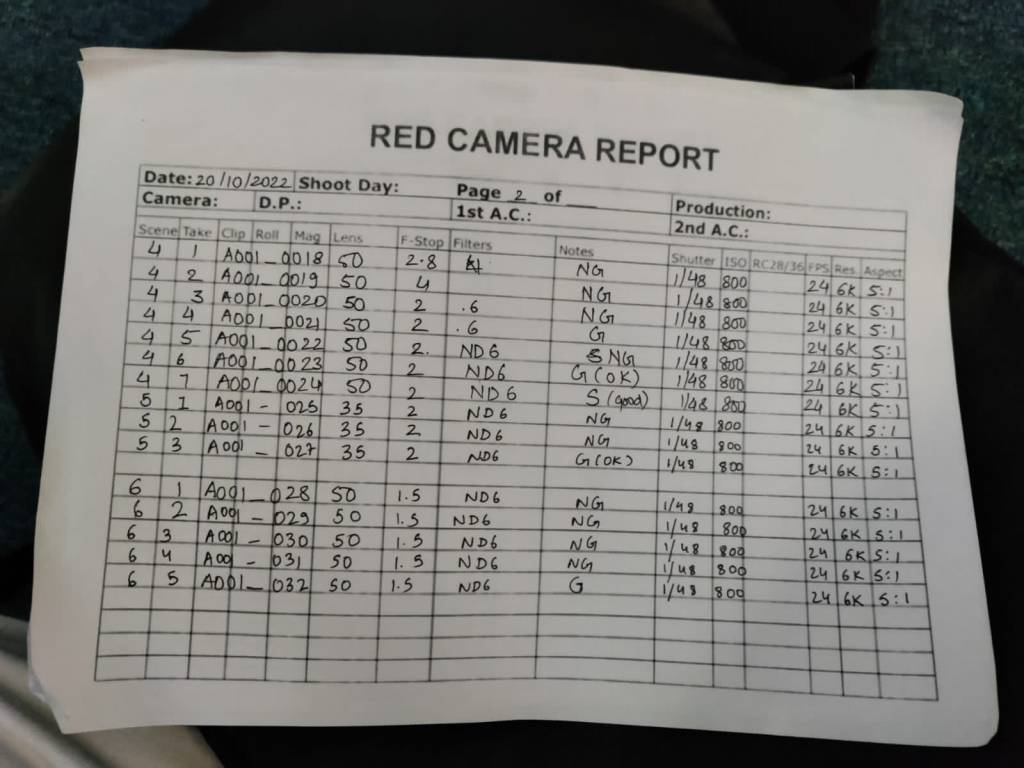 RED CAMERA REPORT
Date: 20/10/2022 Shoot Day: Page 2 of __ Production:
Camera: D.P.: 1st A.C.: 2nd A.C.:
Scene Take Clip Roll Mag Lens F-Stop Filters Notes Shutter ISO RC28/36 FPS Res. Aspect
4 1 A001_0018 50 2.8 NG 1/48 800 24 6K 5:1
4 2 A001_0019 50 4 NG 1/48 800 24 6K 5:1
4 3 A001_0020 50 2 .6 NG 1/48 800 24 6K 5:1
4 4 A001_0021 50 2 .6 G 1/48 800 24 6K 5:1
4 5 A001_0022 50 2. ND6 NG 1/48 800 24 6K 5:1
4 6 A001_0023 50 2 ND6 G(OK) 1/48 800 24 6K 5:1
4 7 A001_0024 50 2 ND6 S (good) 1/48 800 24 6K 5:1
5 1 A001 - 025 35 2 ND6 NG 1/48 800 24 6K 5:1
5 2 A001 - 026 35 2 ND6 NG 1/48 800 24 6K 5:1
5 3 A001 - 027 35 2 ND6 G(OK) 1/48 800 24 6K 5:1
6 1 A001_028 50 1.5 ND6 NG 1/48 800 24 6K 5:1
6 2 A001 - 029 50 1.5 ND6 NG 1/48 800 24 6K 5:1
6 3 A001 - 030 50 1.5 ND6 NG 1/48 800 24 6K 5:1
6 4 A001 - 031 50 1.5 ND6 NG 1/48 800 24 6K 5:1
6 5 A001_032 50 1.5 ND6 G 1/48 800 24 6K 5:1